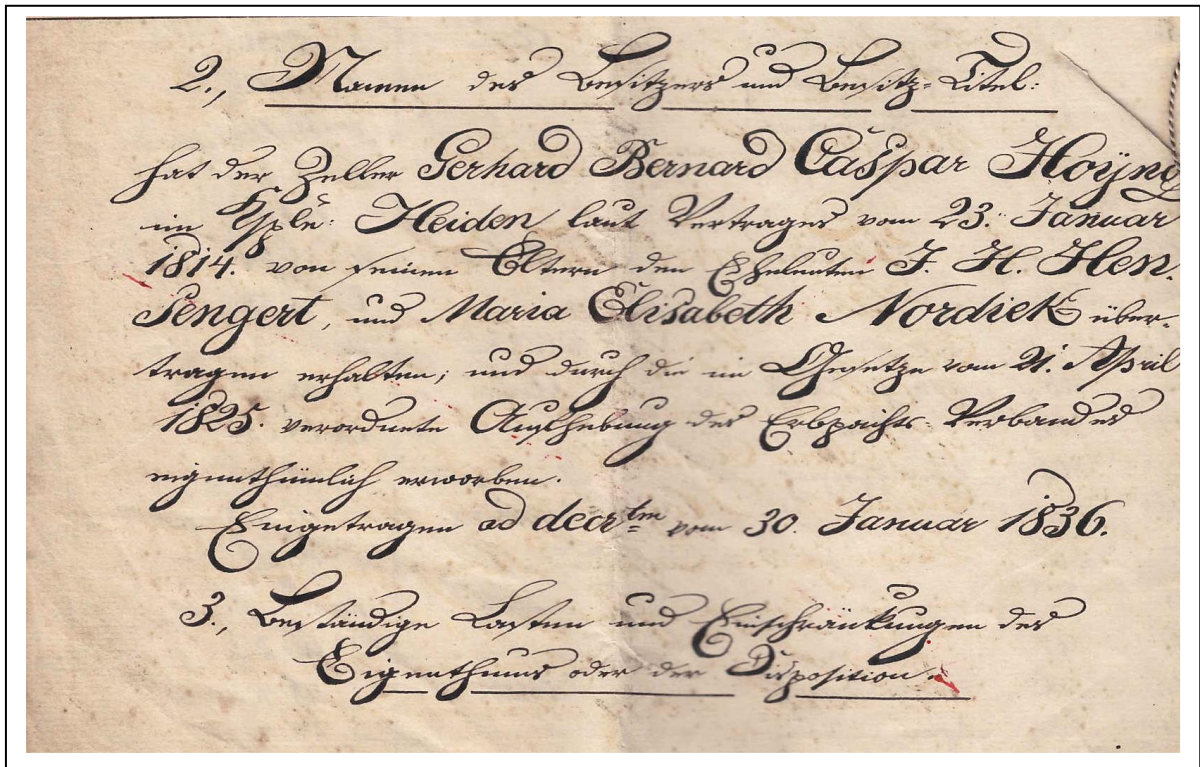 2., Namen des Besitzers und Besitz-Titel:
hat der Zeller Gerhard Bernard Caspar Hoÿng
im Ksple: Heiden laut Vertrages vom 23. Januar
1814. von seinen Eltern den Eheleuten J. H. Hen.
Sengert, und Maria Elisabeth Nordiek über-
tragen erhalten; und durch die im Gesetze vom 21. April
1825. verordnete Aufhebung des Erbpachts-Verbandes
eigenthümlich erworben.
Eingetragen ad decrtm vom 30. Januar 1836.
3., Beständige Lasten und Einschränkungen des
Eigenthums oder der Disposition.